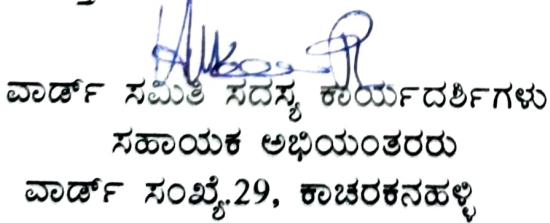 ವಾರ್ಡ್ ಸಮಿತಿ ಸದಸ್ಯ ಕಾರ್ಯದರ್ಶಿಗಳು
ಸಹಾಯಕ ಅಭಿಯಂತರರು
ವಾರ್ಡ್ ಸಂಖ್ಯೆ.29, ಕಾಚರಕನಹಳ್ಳಿ